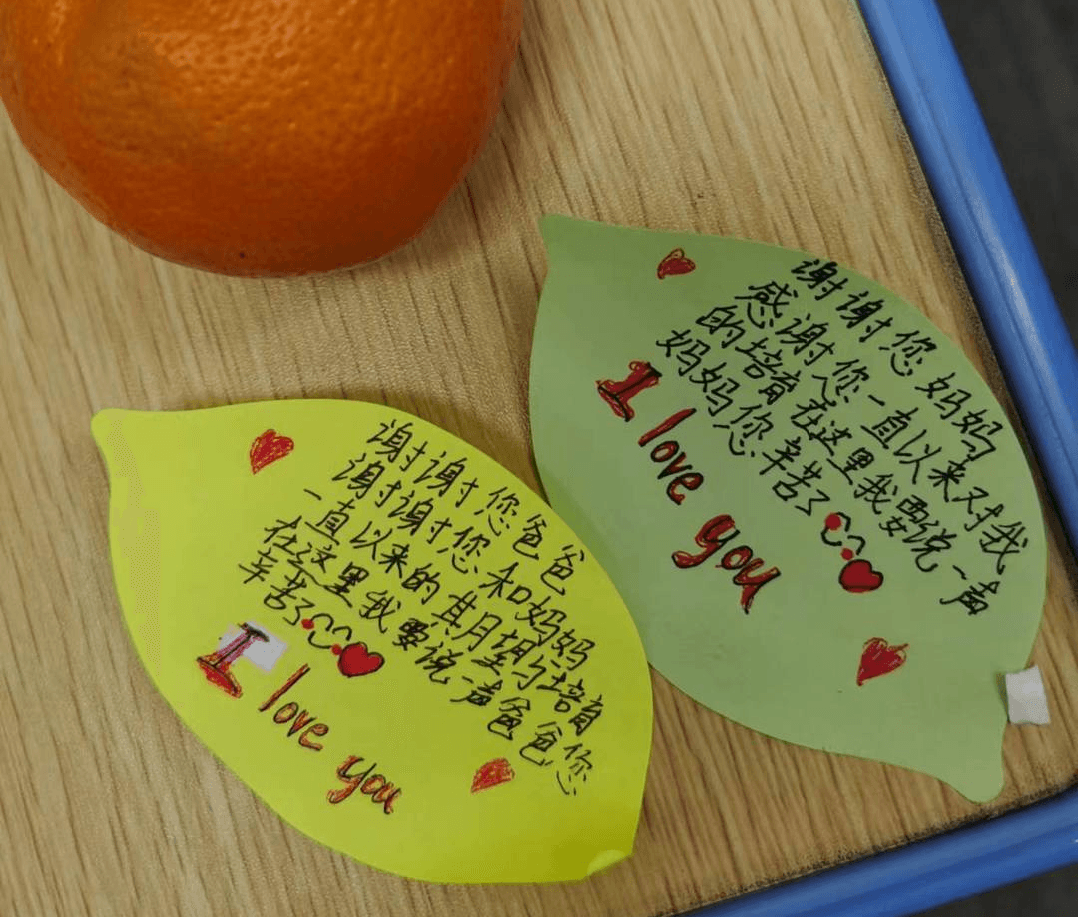 谢谢您爸爸
谢谢您和妈妈
一直以来的期望与培育
在这里我要说一声爸爸您
辛苦了
I love you
谢谢您妈妈
感谢您一直以来对我
的培育在这里我要说一声
妈妈您辛苦了
I love you